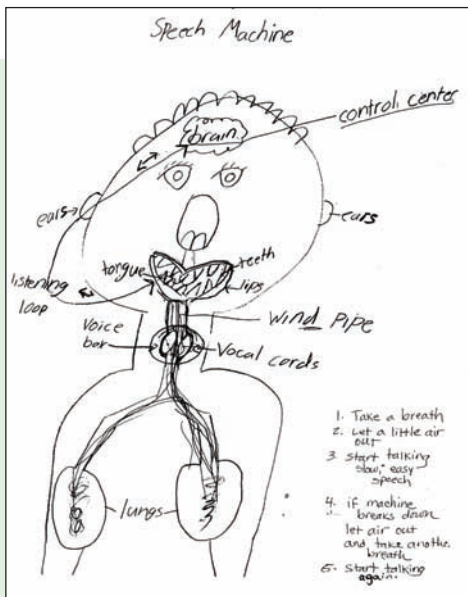 Speech Machine
control center
brain
ears
ears
torgue
teeth
lips
listening
loop
wind pipe
Voice
box
Vocal cords
lungs
1. Take a breath
2. Let a little air
out
3. Start talking
slow, easy
speech
4. if machine
breaks down
let air out
and take another
breath
5. Start talking
again.